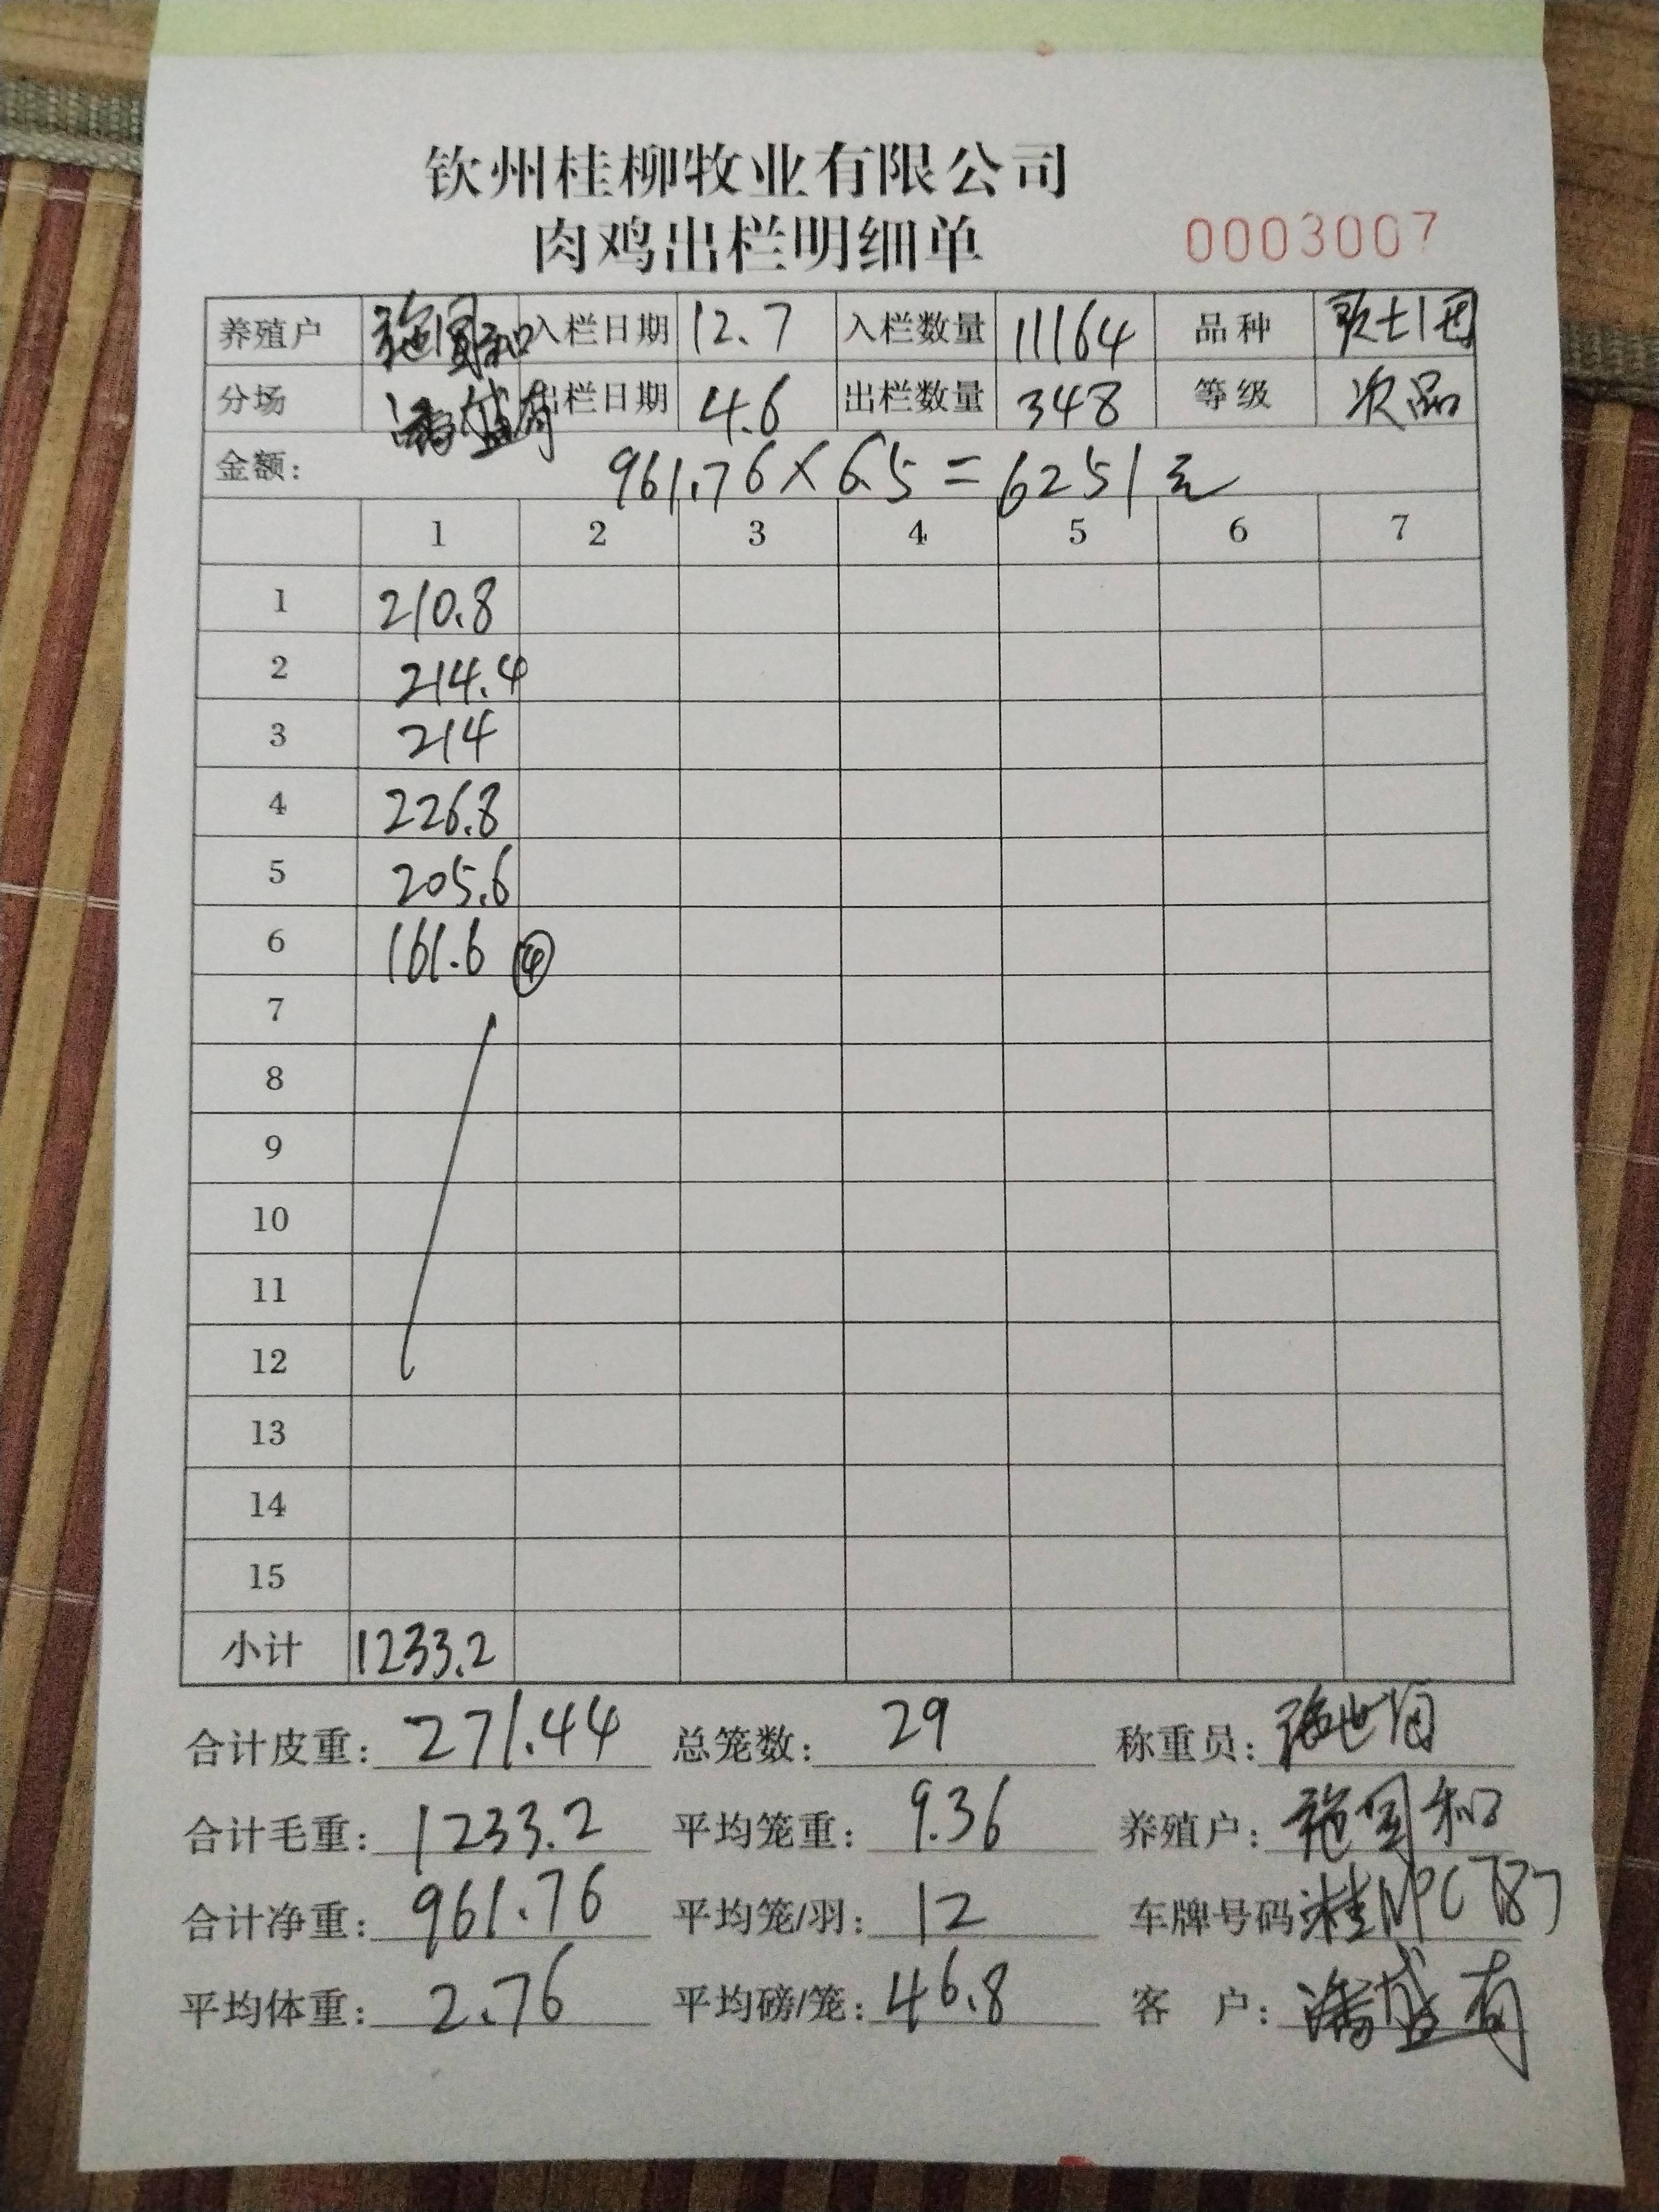 钦州桂柳牧业有限公司
肉鸡出栏明细单 0003007
养殖户 施国和 入栏日期 12.7 入栏数量 11164 品种
分场 潘盛有 出栏日期 4.6 出栏数量 348 等级 次品
金额: 961.76×6.5=6251元
1 2 3 4 5 6 7
1 210.8
2 214.4
3 214
4 226.8
5 205.6
6 161.6 ④
7
8
9
10
11
12
13
14
15
小计 1233.2
合计皮重: 271.44 总笼数: 29 称重员:
合计毛重: 1233.2 平均笼重: 9.36 养殖户: 施国和
合计净重: 961.76 平均笼/羽: 12 车牌号码
平均体重: 2.76 平均磅/笼: 46.8 客 户: 潘盛有